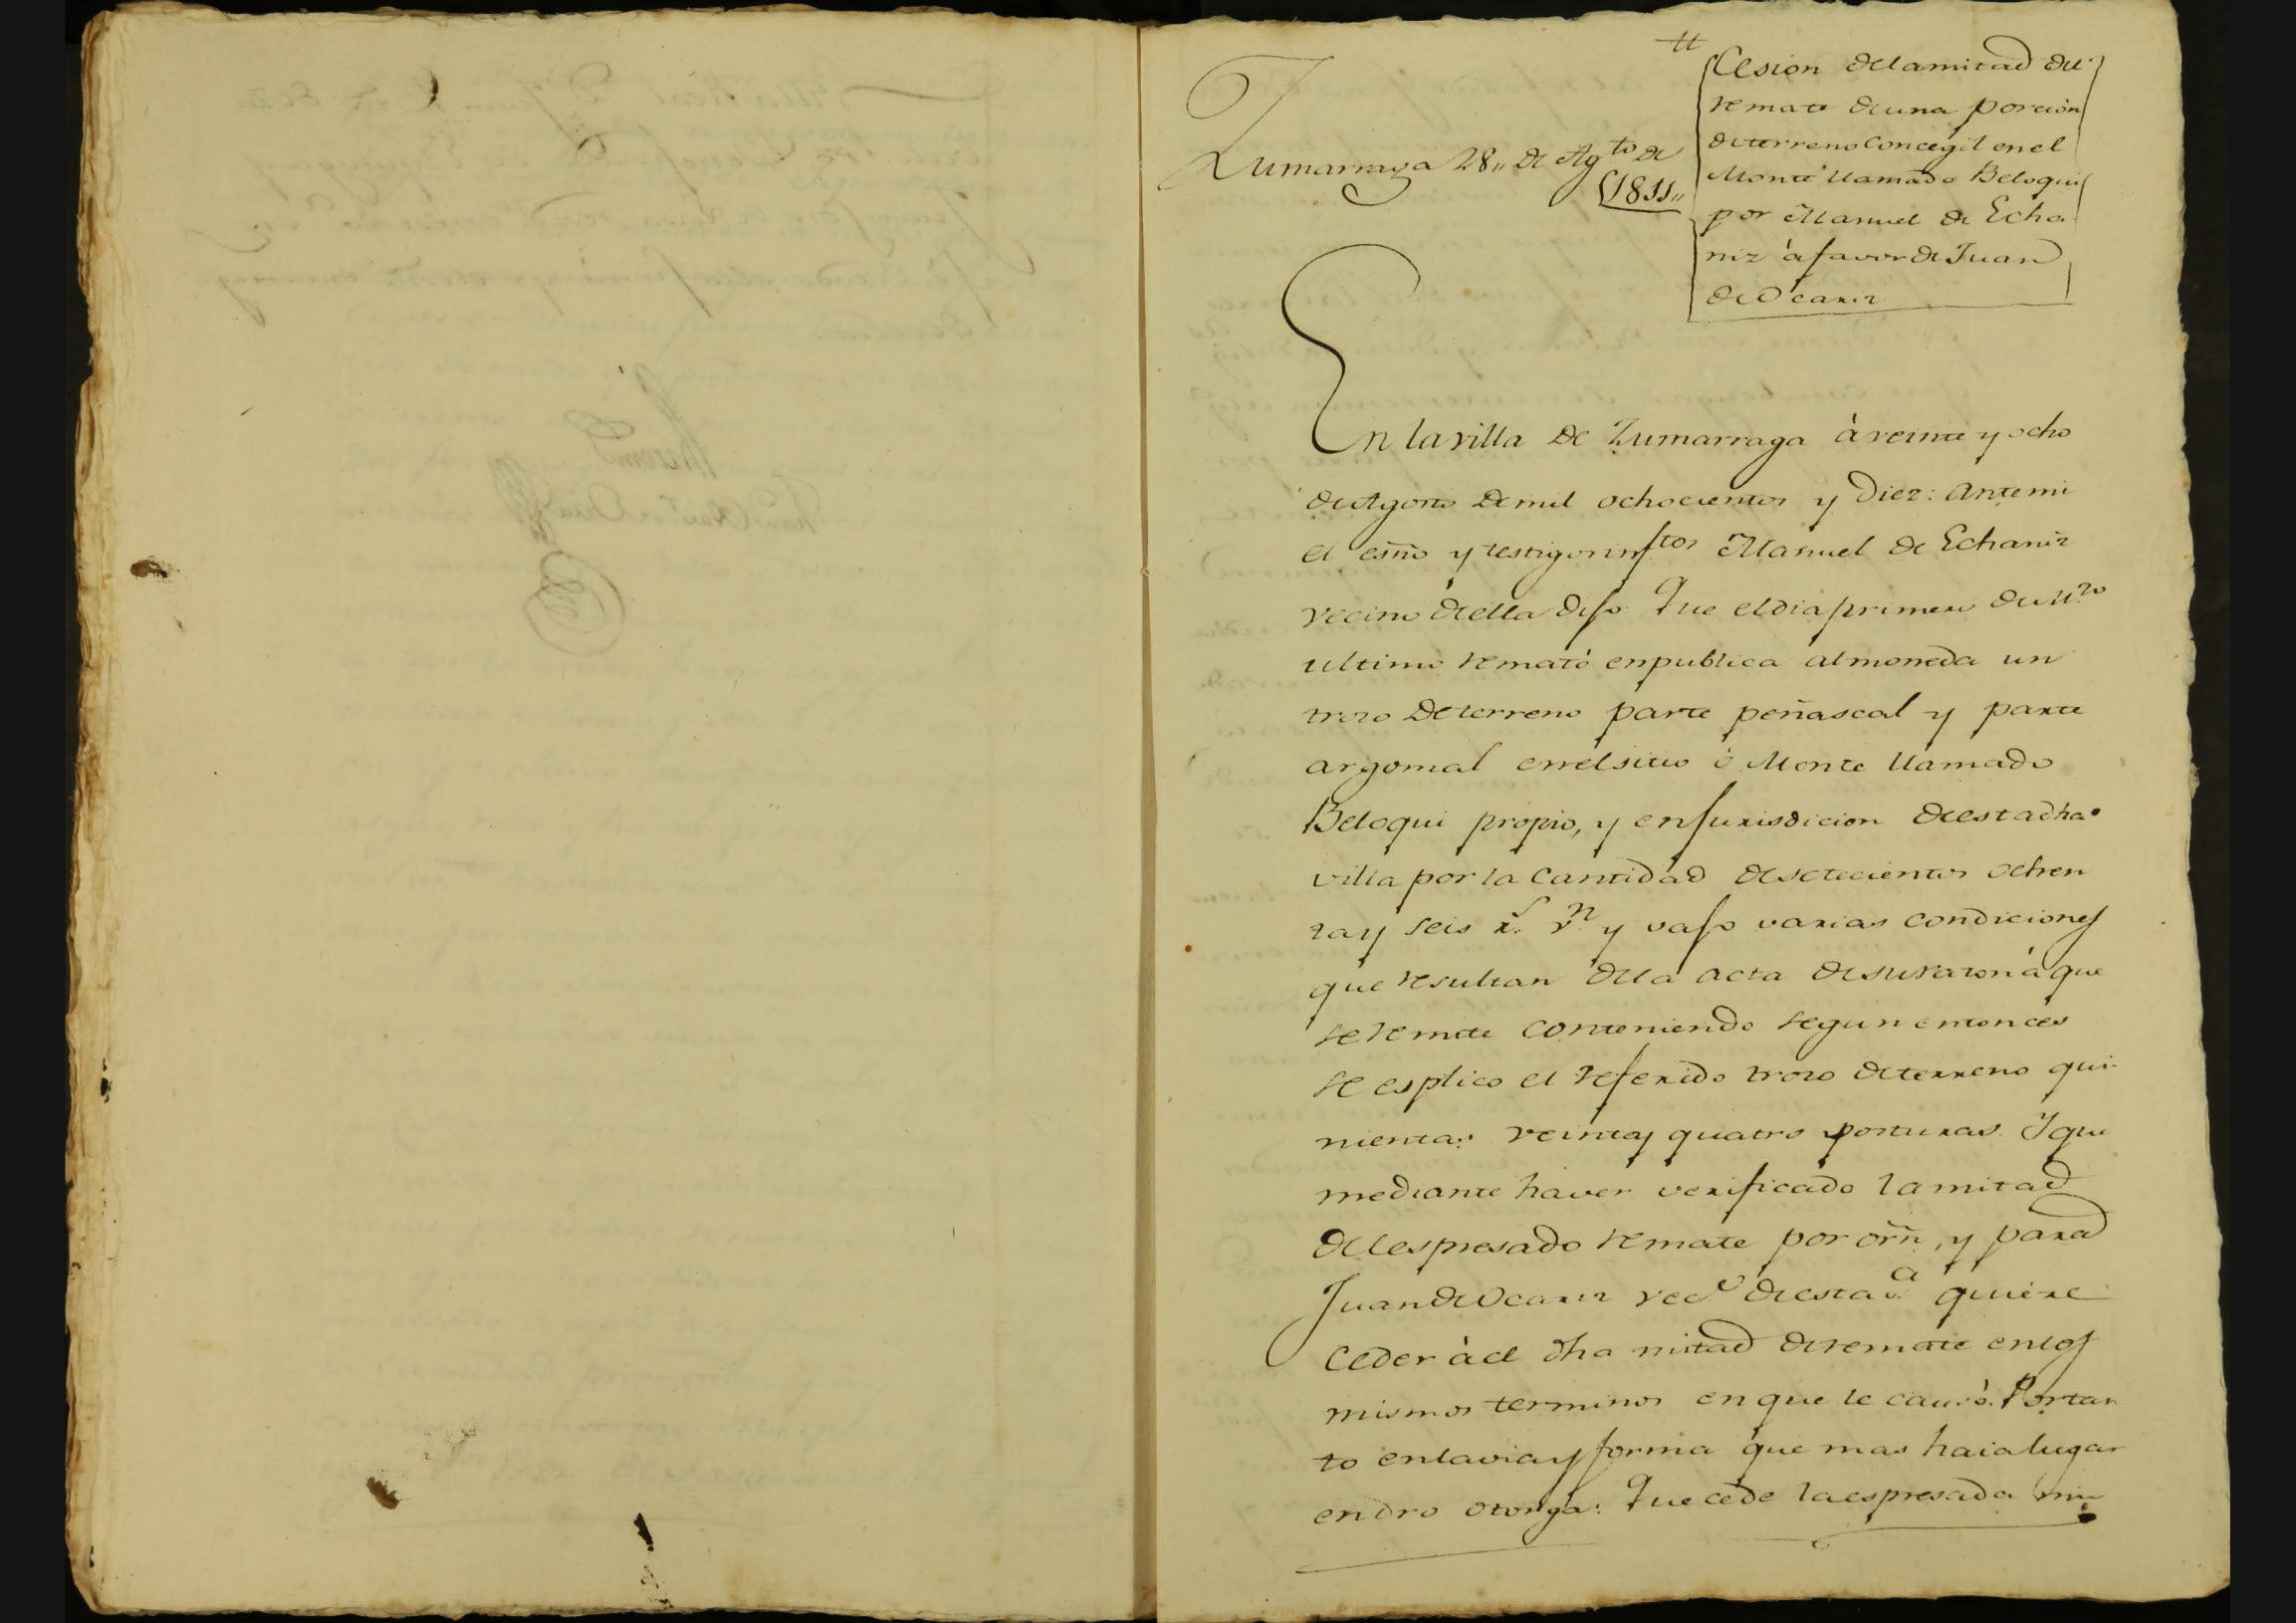 Zumarraga 28,, de Ag.to de
1811,,
tt
Cesion dela mitad del
remate de una porcion
de terreno Concegil en el
Monte llamado Beloqui
por Manuel de Echa
niz à favor de Juan
de Ocariz
En la villa de Zumarraga à veinte y ocho
de Agosto de mil ochocientos y Diez: Ante mi
el esño y testigos infttos Manuel de Echaniz
vecino de ella dijo Que el dia primero de
ultimo remató en publica almoneda un
trozo de terreno parte peñascal y parte
argomal en el sitio ó Monte llamado
Beloqui propio, y en jurisdicion de esta dha
villa por la Cantidad de setecientos ochen
ta y seis r.s v.n y vajo varias condiciones
que resultan de la acta de su razon à que
se remite conteniendo segun entonces
se esplico el referido trozo de terreno qui
nientas veinte y quatro posturas. Y que
mediante haver verificado la mitad
del espresado remate por orñ, y para
Juan de Ocariz vec.o de esta v.a quiere
ceder à el dha mitad de remate en los
mismos terminos en que le causó. Por tan
to en la via y forma que mas haia lugar
en dro otorga: Que cede la espresada mi